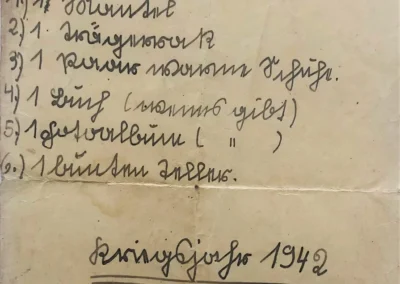 1.) 1 Mantel
2.) 1 Trägerrok
3.) 1 Paar warme Schuhe.
4.) 1 Buch (wenns gibt)
5.) 1 Fotoalbum ( " )
6.) 1 bunten Teller.
Kriegsjahr 1942